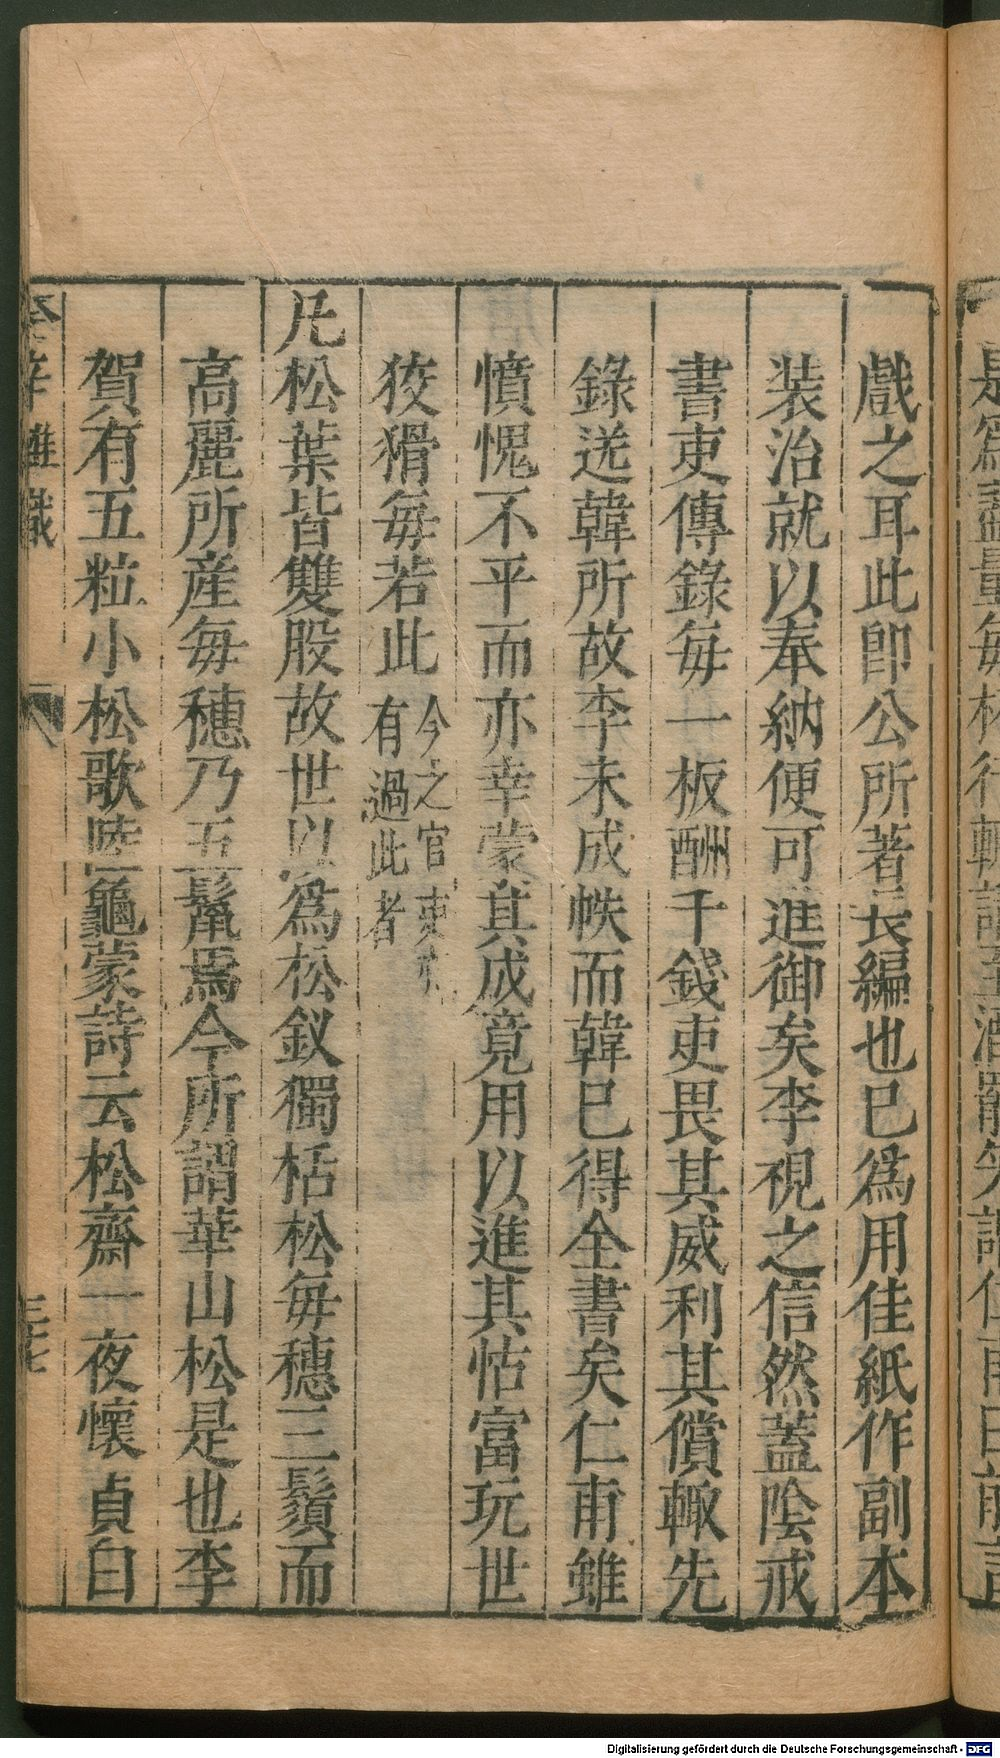 戲之耳此卽公所著長編也已爲用佳紙作副本
装治就以奉納便可進御矣李視之信然蓋陰戒
書吏傳錄毎一板酬千錢吏畏其威利其償輙先
錄送韓所故李未成帙而韓已得全書矣仁甫雖
憤愧不平而亦幸蒙其成竟用以進其怙富玩世
狡猾毎若此
今之官吏
有過此者
凡松葉皆雙股故世以爲松釵獨栝松毎穗三鬚而
高麗所産毎穗乃五鬣焉今所謂華山松是也李
賀有五粒小松歌陸龜蒙詩云松齋一夜懷貞白
癸辛雜識
三七
Digitalisierung gefördert durch die Deutsche Forschungsgemeinschaft - DFG